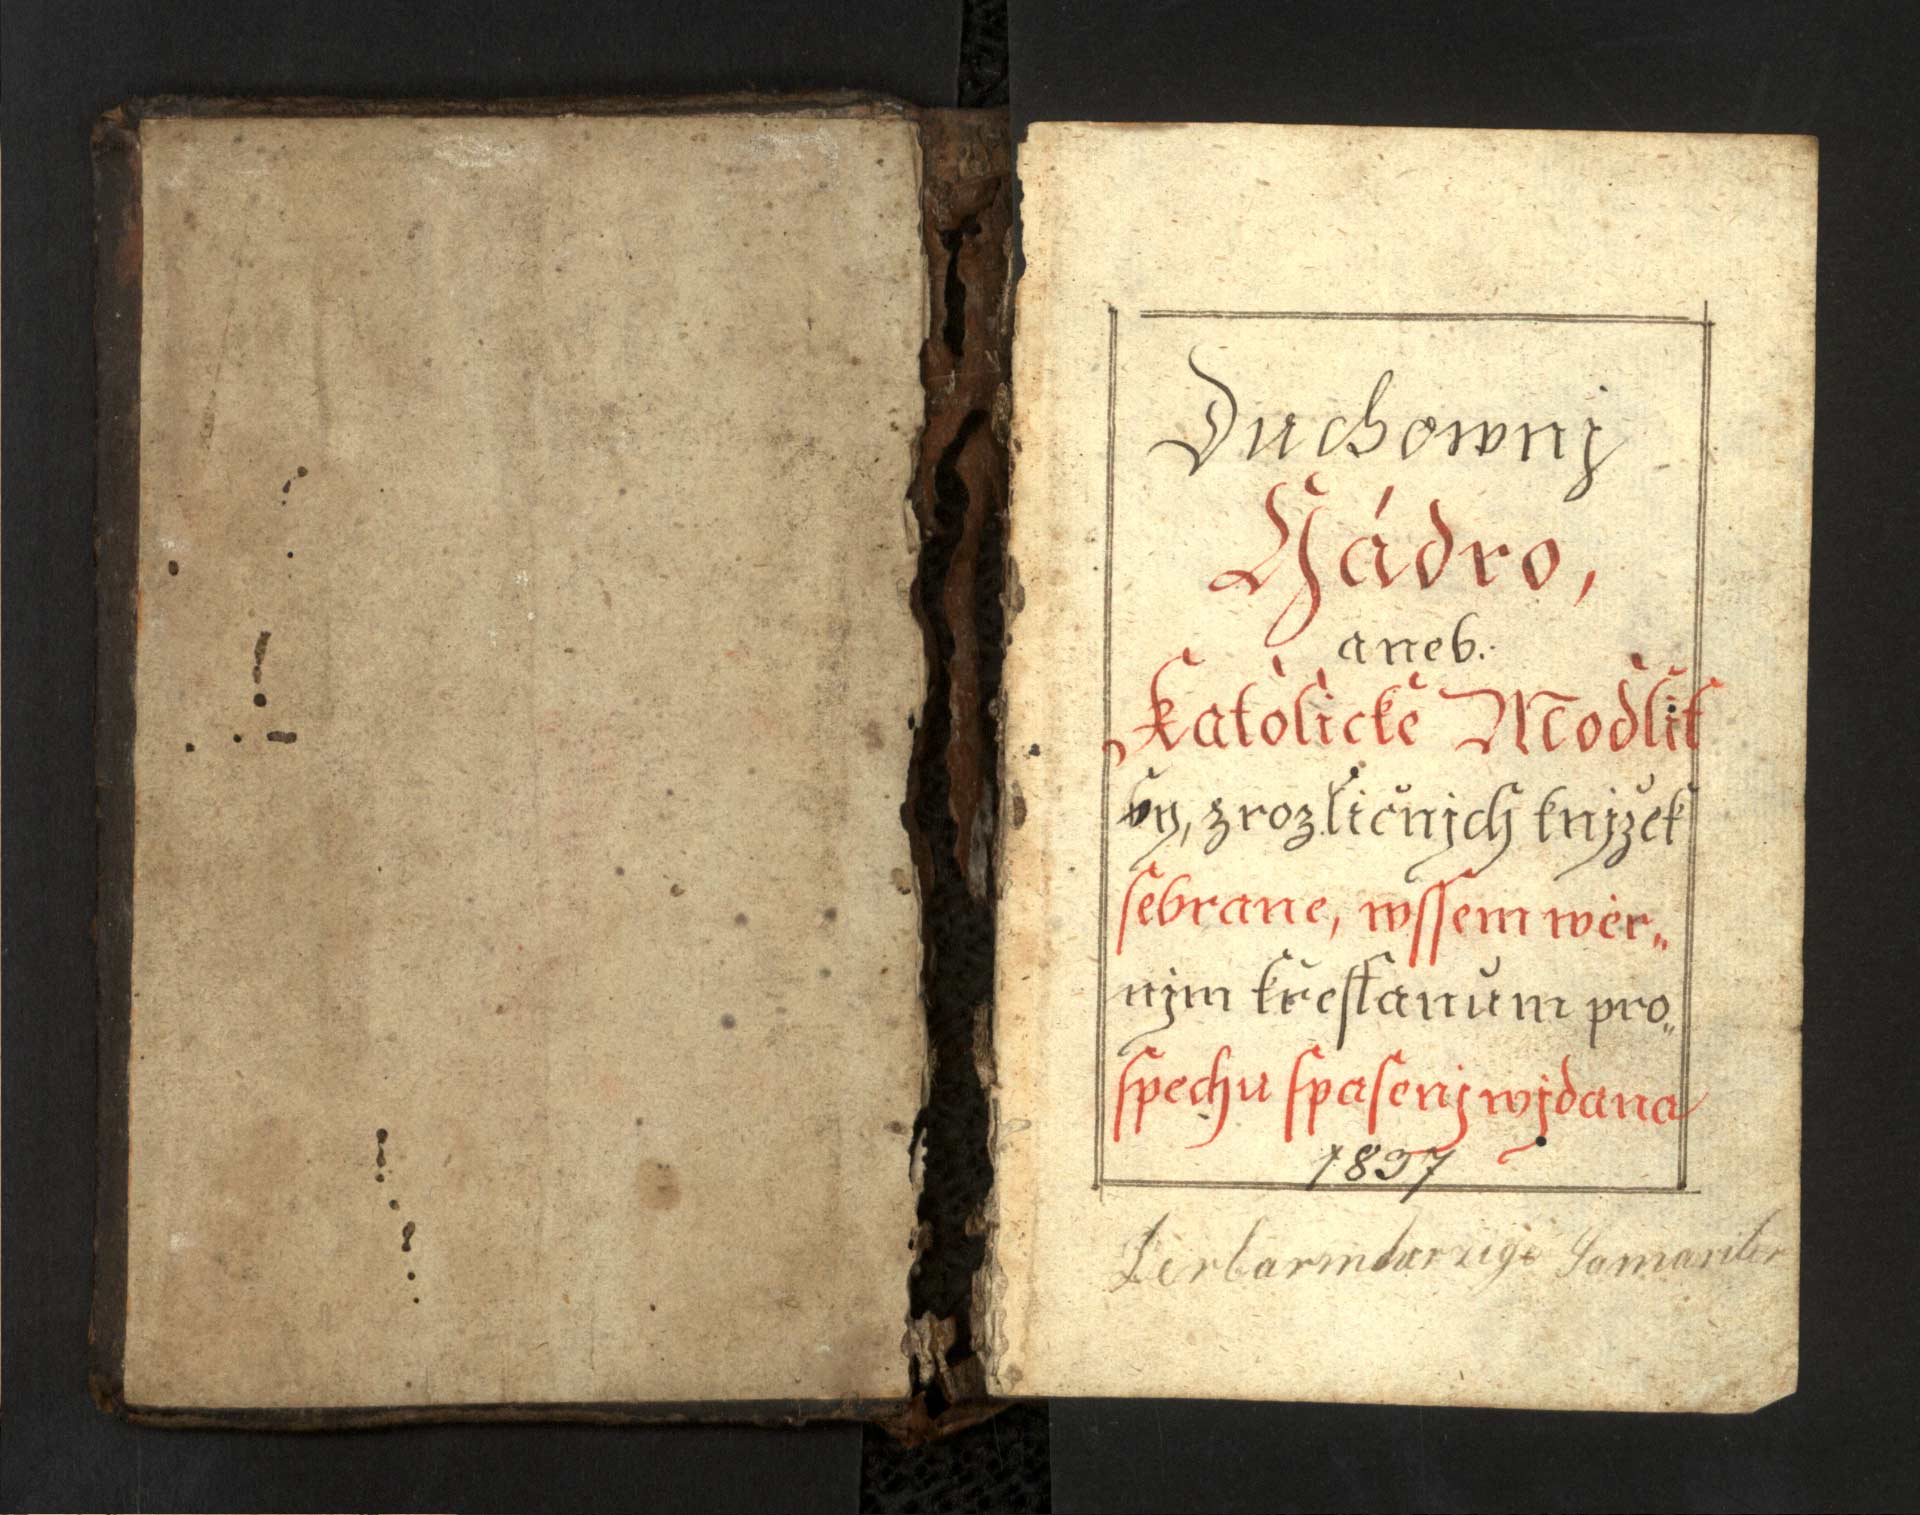 Duchownj
Gádro,
aneb.
Katolické Modlit
by, z rozličnjch knjžek
sebrane, wssem wěr„
njm křestanům pro„
spěchu spasenj wjdana
1837
barmharzige Samariter